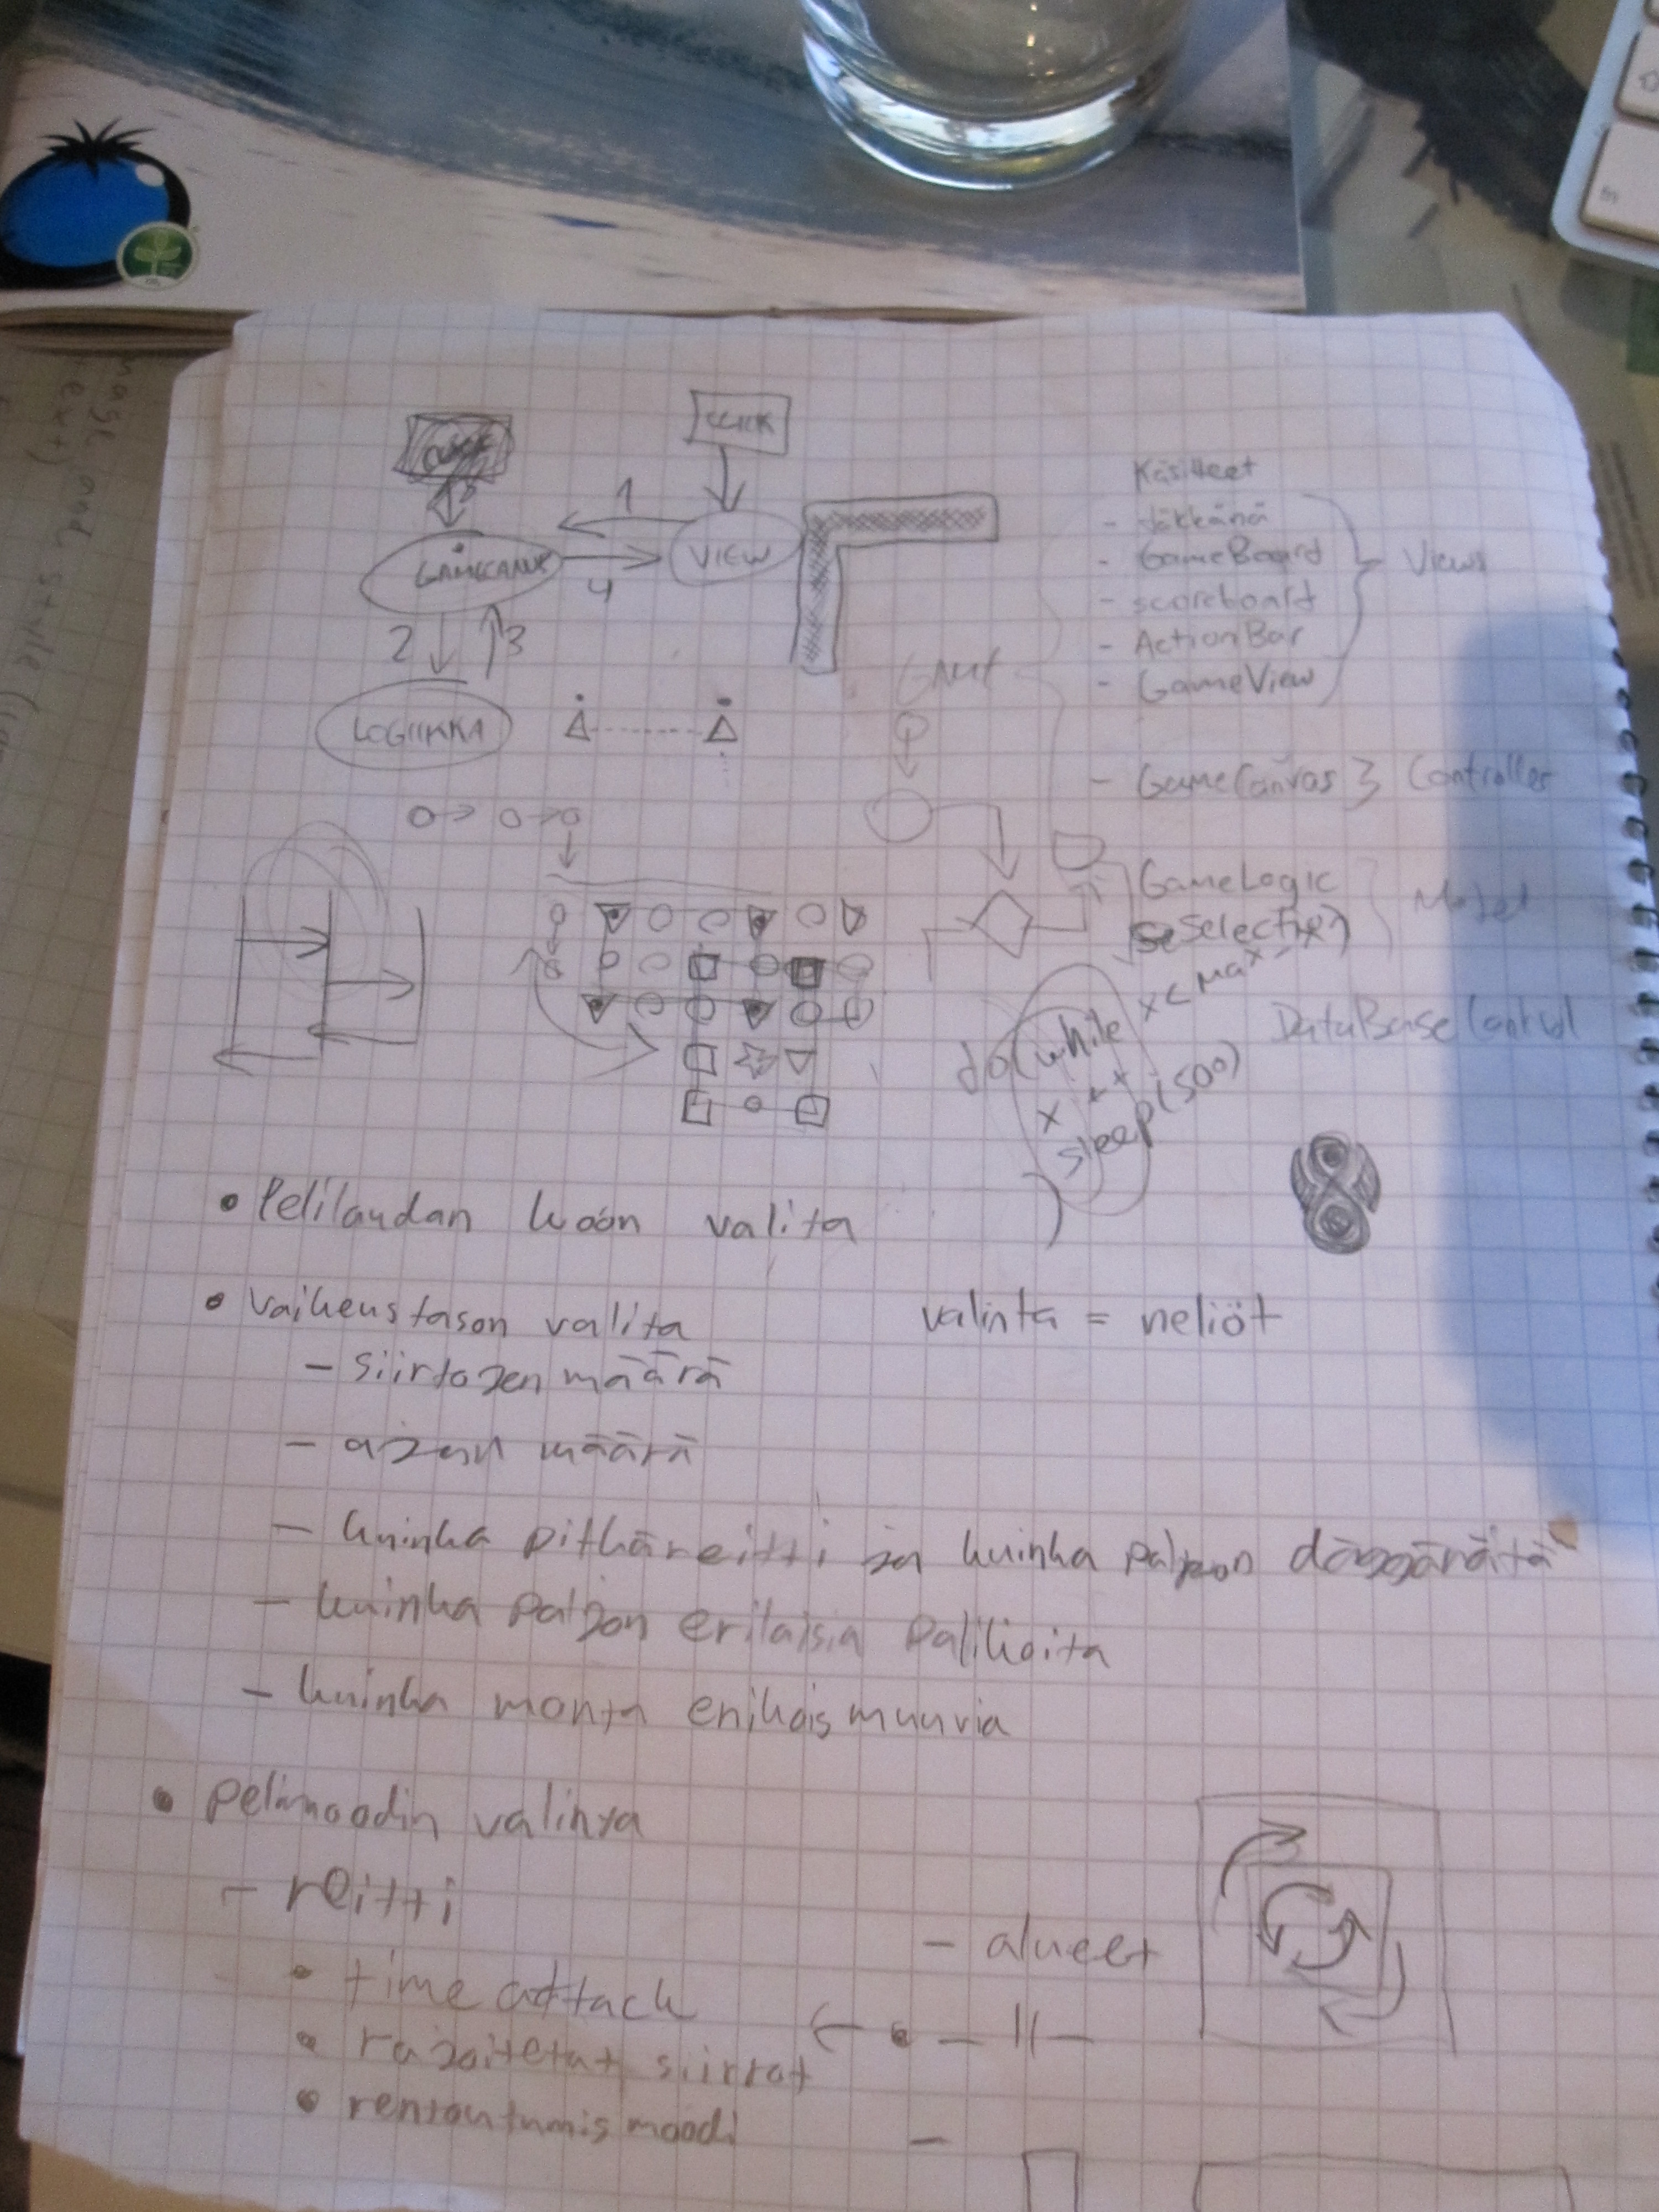 CLICK
1
GAMECANV
VIEW
4
2
3
LOGIIKKA
Käsitteet
-
- GameBoard
- scoreboard
- ActionBar
- GameView
Views
- GameCanvas } Controller
GameLogic
Selection
Model
DataBaseControl
do(while x < max
x ++
sleep(500)
)
• Pelilaudan koon valita
• Vaikeustason valita
valinta = neliöt
- siirtojen määrä
- ajan määrä
- kuinka pitkä reitti ja kuinka paljon
- kuinka paljon erilaisia palikoita
- kuinka monta erikoismuuvia
• pelimoodin valinta
- reitti
- alueet
• time attack
• rajoitetut siirrot
• rentoutumismoodi
-
fn